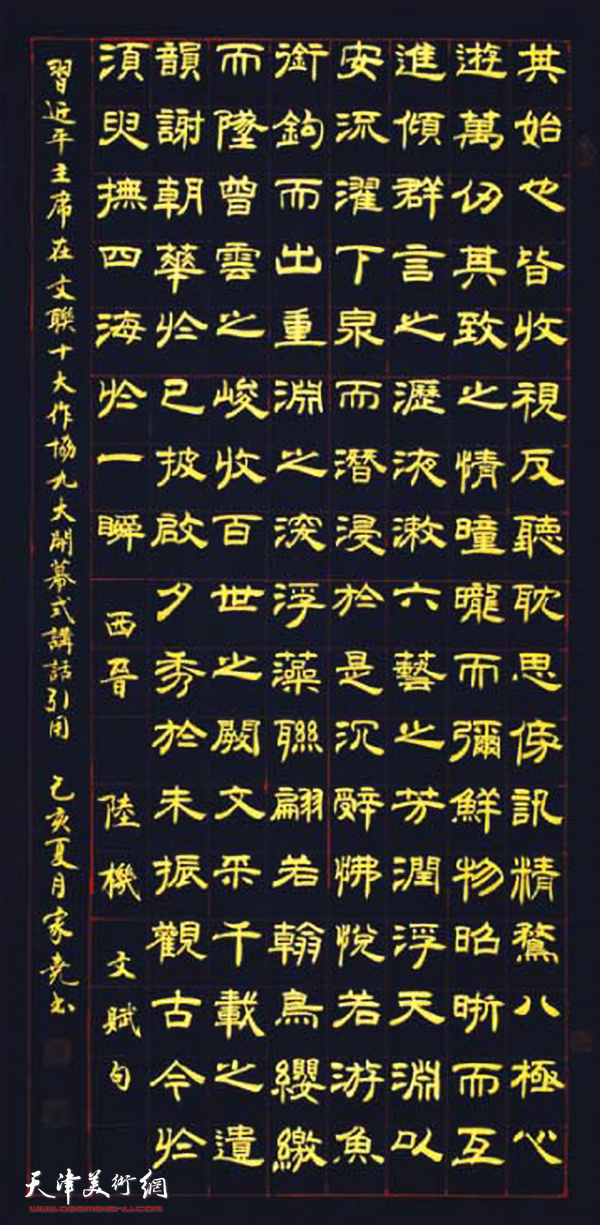 其始也皆收視反聽耽思傍訊精鶩八極心
遊萬仞其致之情曈曨而彌鮮物昭晰而互
進傾群言之瀝液漱六藝之芳潤浮天淵以
安流濯下泉而潛浸於是沉辭怫悅若游魚
銜鈎而出重淵之深浮藻聯翩若翰鳥纓繳
而墜曾雲之峻收百世之闕文采千載之遺
韻謝朝華於已披啟夕秀於未振觀古今於
須臾撫四海於一瞬 西晉 陸機 文賦句
習近平主席在文聯十大作協九大開幕式講話引用 己亥夏月家堯書
天津美術網
www.022meishu.com